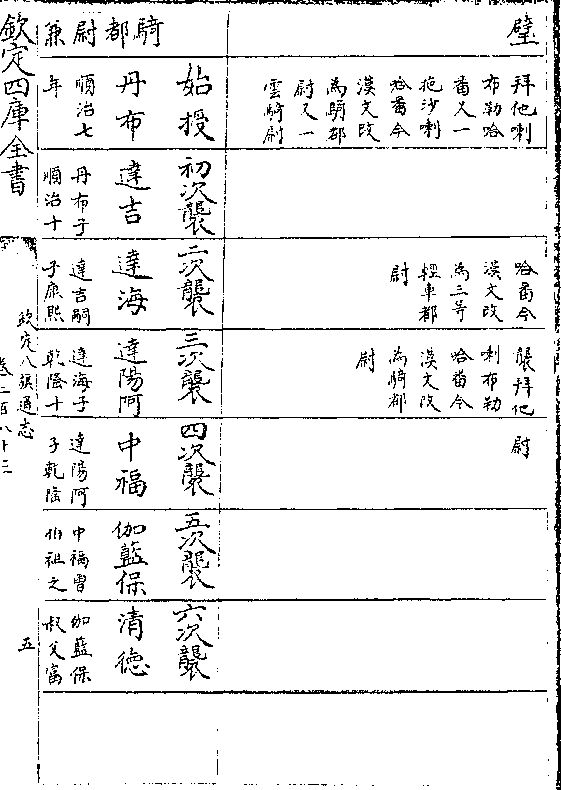 璧
拜他喇
布勒哈
番又一
拖沙喇
哈番今
漢文改
為騎都
尉又一
雲騎尉
哈番今
漢文改
為三等
輕車都
尉
襲拜他
喇布勒
哈番今
漢文改
為騎都
尉
尉
騎都尉兼
始授
丹布
順治七
年
初次襲
達吉
丹布子
順治十
二次襲
達海
達吉嗣
子康熙
三次襲
達陽阿
達海子
乾隆十
四次襲
中福
達陽阿
子乾隆
五次襲
伽藍保
中福曾
伯祖之
六次襲
清德
伽藍保
叔父富
欽定四庫全書
欽定八旗通志
卷二百八十三
五